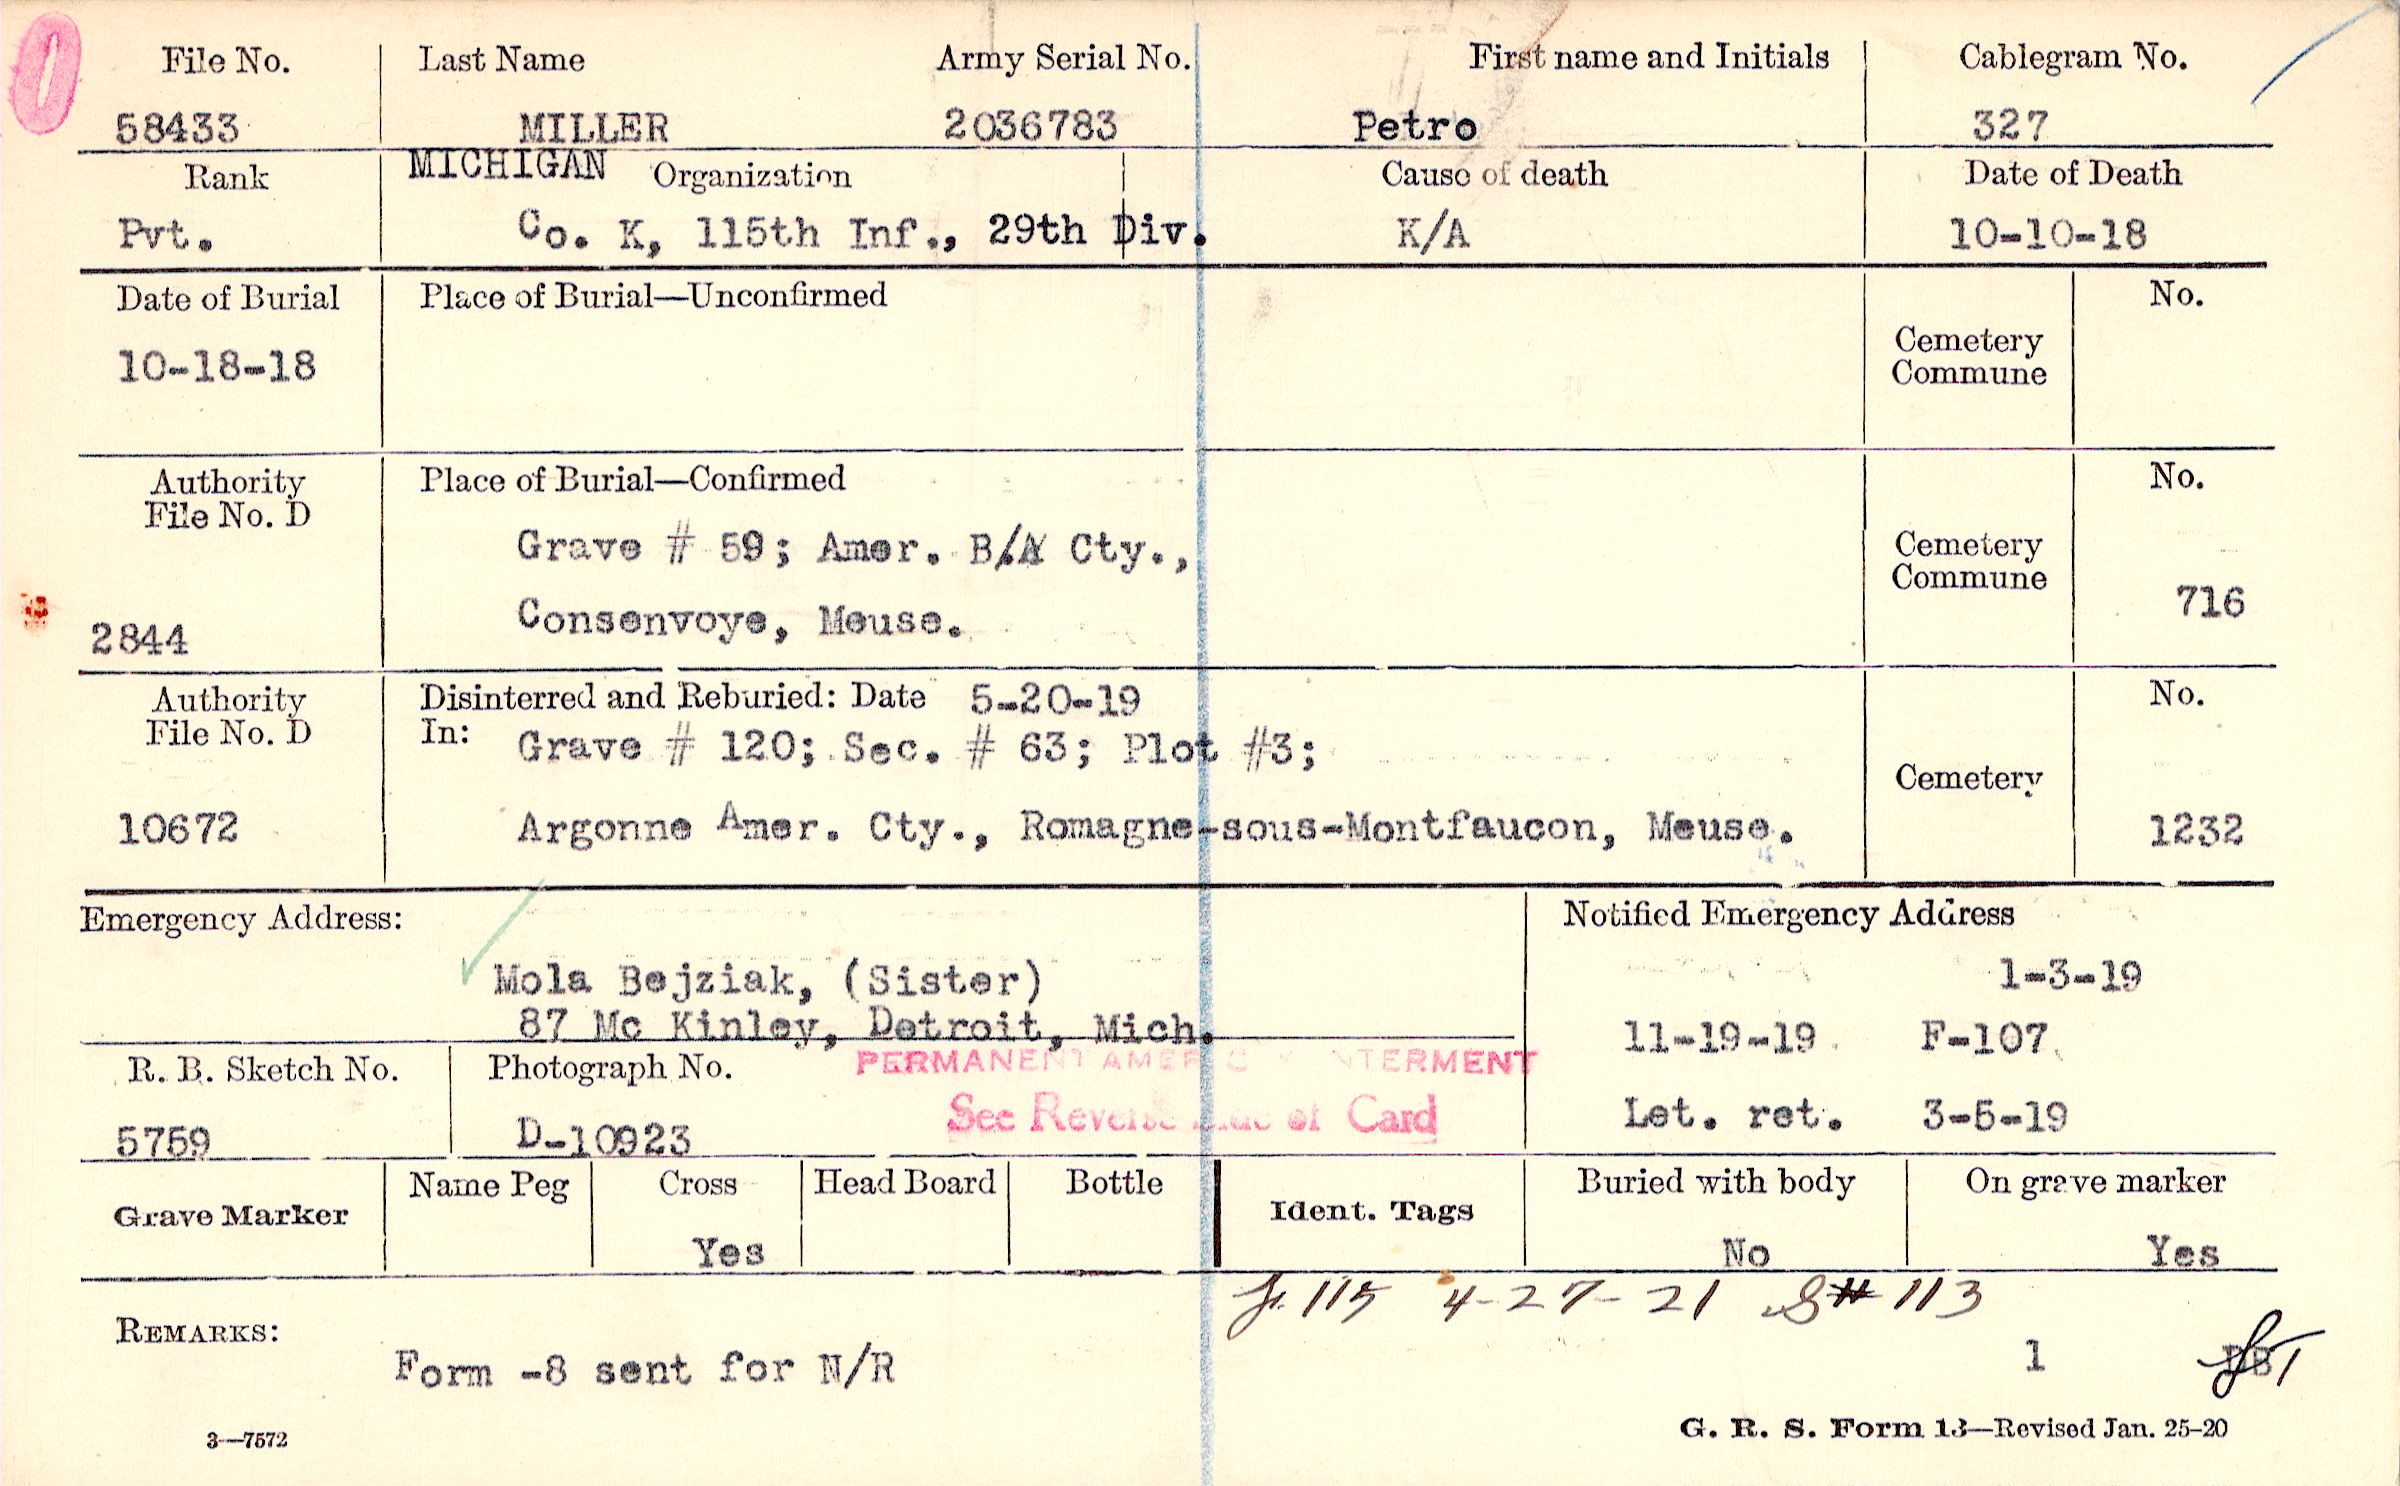 File No. Last Name Army Serial No. First name and Initials Cablegram No.
58433 MILLER 2036783 Petro 327
Rank MICHIGAN Organization Cause of death Date of Death
Pvt. Co. K, 115th Inf., 29th Div. K/A 10-10-18
Date of Burial Place of Burial—Unconfirmed No.
10-18-18
Cemetery
Commune
Authority Place of Burial—Confirmed No.
File No. D
Grave # 59; Amer. B/A Cty., Cemetery
Commune
716
Consenvoye, Meuse.
2844
Authority Disinterred and Reburied: Date 5-20-19 No.
File No. D In: Grave # 120; Sec. # 63; Plot #3;
Cemetery
10672 Argonne Amer. Cty., Romagne-sous-Montfaucon, Meuse. 1232
Emergency Address: Notified Emergency Address
Mola Bejziak, (Sister) 1-3-19
87 Mc Kinley, Detroit, Mich. 11-19-19 F-107
PERMANENT AMERIC NTERMENT
R. B. Sketch No. Photograph No.
See Reverse of Card Let. ret. 3-5-19
5759 D-10923
Grave Marker Name Peg Cross Head Board Bottle Ident. Tags Buried with body On grave marker
Yes No Yes
115 4-27-21 S# 113
REMARKS:
Form -8 sent for N/R 1
3—7572 G. R. S. Form 13—Revised Jan. 25-20